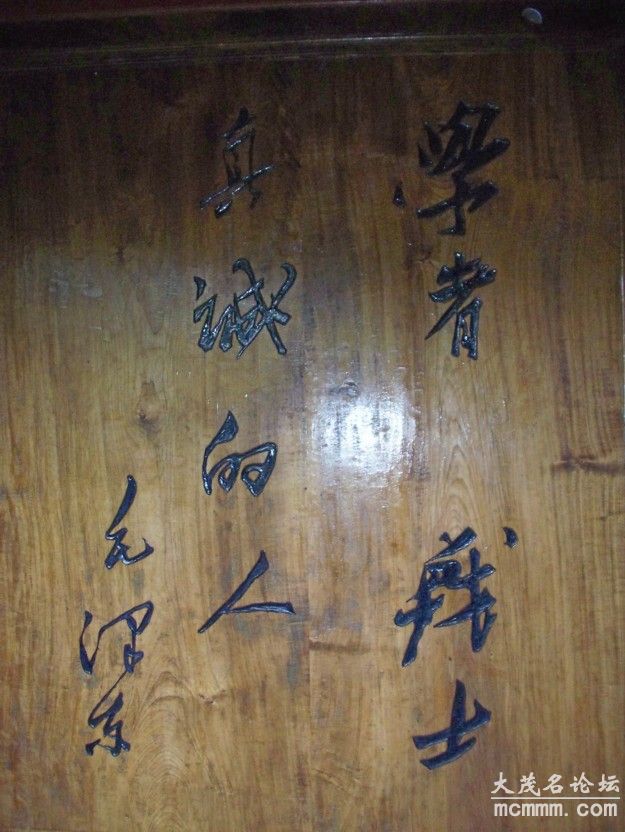 學者 战士
真誠的人
毛泽东
大茂名论坛
mcmmm.com